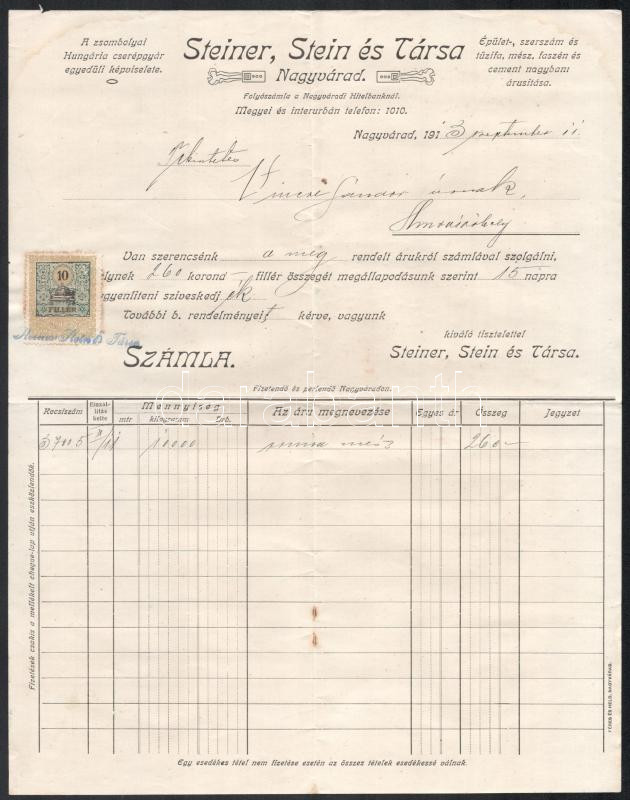 A zsombolyai
Hungária cserépgyár
egyedüli képviselete.
Steiner, Stein és Társa
Nagyvárad.
Folyószámla a Nagyváradi Hitelbanknál.
Megyei és interurbán telefon: 1010.
Épület-, szerszám és
tűzifa, mész, faszén és
cement nagybani
árusítása.
Nagyvárad, 1913 september 11.
Tekintetes
Vincze Sándor úrnak,
Van szerencsénk a még rendelt árukról számlával szolgálni,
elynek 260 korona – fillér összegét megállapodásunk szerint 15 napra
egyenlíteni sziveskedjék
További b. rendelményeit kérve, vagyunk
kiváló tisztelettel
Steiner, Stein és Társa.
10
FILLÉR
SZÁMLA.
Fizetendő és perlendő Nagyváradon.
Kocsiszám
Elszál-
lítás
kelte
Mennyiség
mtr
kilogramm
Drb.
Az áru megnevezése
Egység ár
Összeg
Jegyzet
10000
260 –
darabanth
Fizetések csakis a mellékelt cheque-lap utján eszközlendők.
Egy esedékes tétel nem fizetése esetén az összes tételek esedékessé válnak.